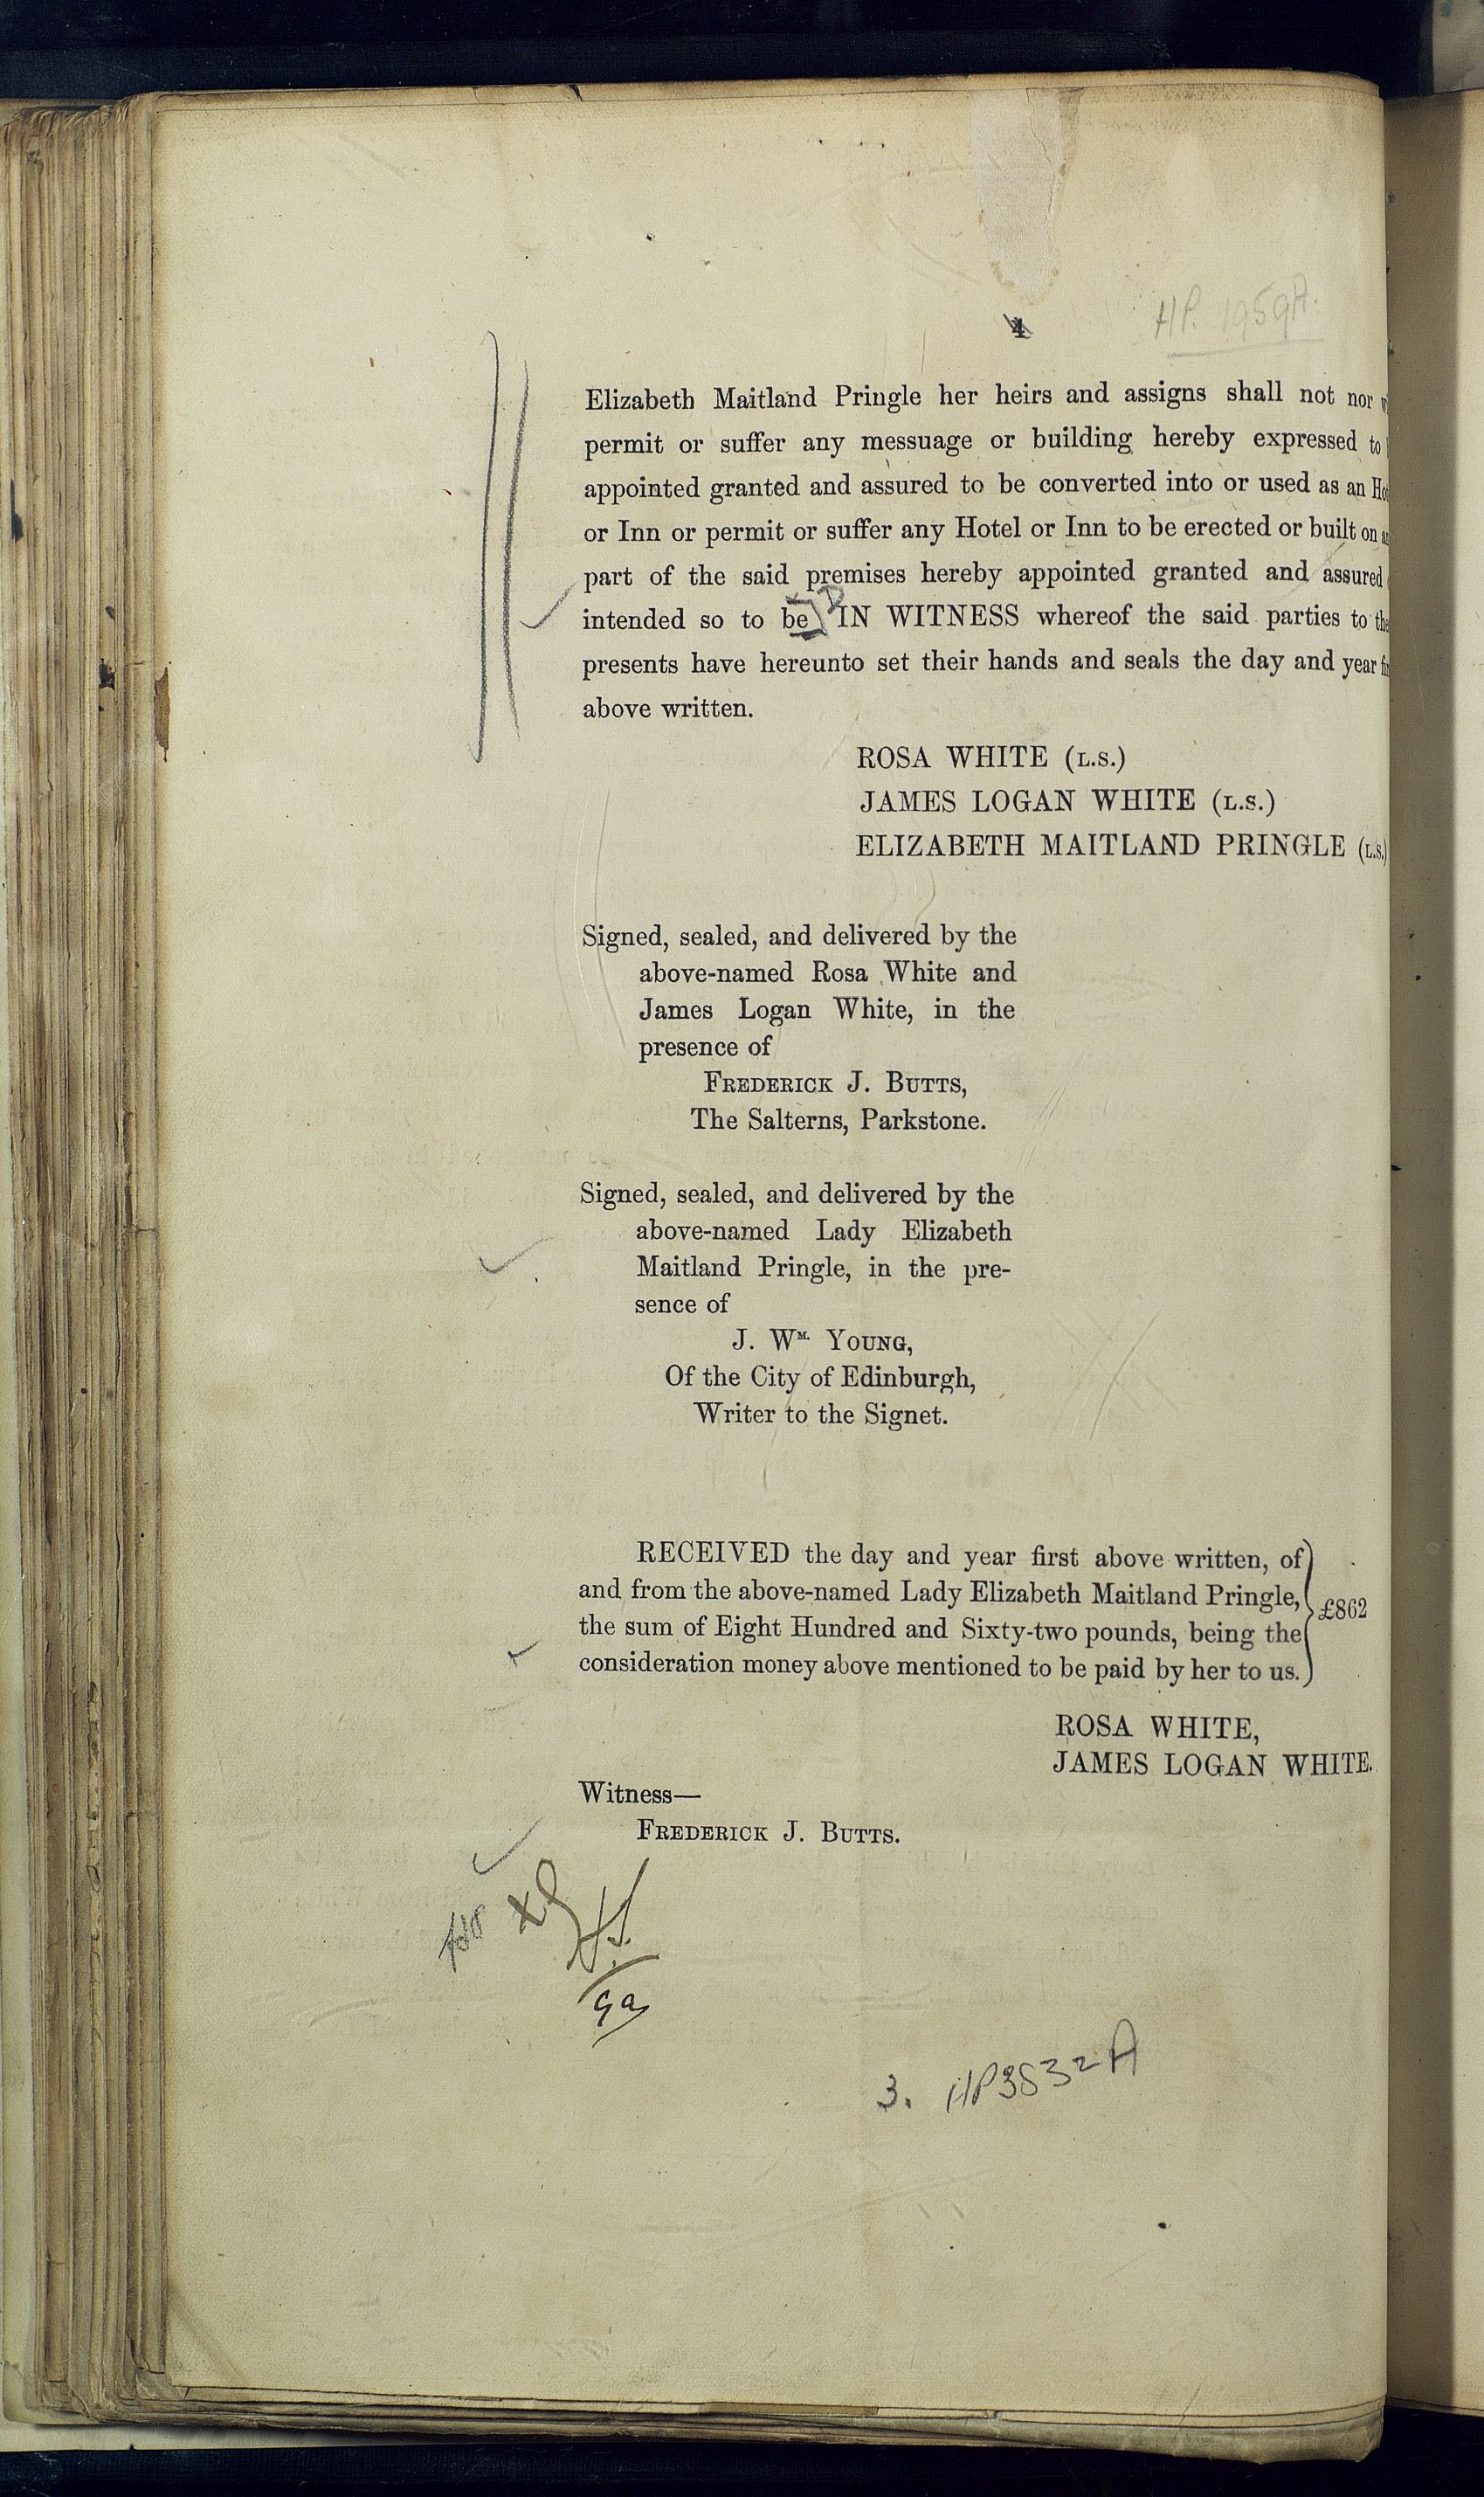 HP. 1959A.
4
Elizabeth Maitland Pringle her heirs and assigns shall not nor
permit or suffer any messuage or building hereby expressed to
appointed granted and assured to be converted into or used as an Ho
or Inn or permit or suffer any Hotel or Inn to be erected or built on
part of the said premises hereby appointed granted and assured
intended so to be IN WITNESS whereof the said parties to the
presents have hereunto set their hands and seals the day and year
above written.
ROSA WHITE (L.S.)
JAMES LOGAN WHITE (L.S.)
ELIZABETH MAITLAND PRINGLE (L.S.)
Signed, sealed, and delivered by the
above-named Rosa White and
James Logan White, in the
presence of
FREDERICK J. BUTTS,
The Salterns, Parkstone.
Signed, sealed, and delivered by the
above-named Lady Elizabeth
Maitland Pringle, in the pre-
sence of
J. WM. YOUNG,
Of the City of Edinburgh,
Writer to the Signet.
RECEIVED the day and year first above written, of
and from the above-named Lady Elizabeth Maitland Pringle,
the sum of Eight Hundred and Sixty-two pounds, being the
consideration money above mentioned to be paid by her to us.
£862
ROSA WHITE,
JAMES LOGAN WHITE.
Witness—
FREDERICK J. BUTTS.
3. HP3832A